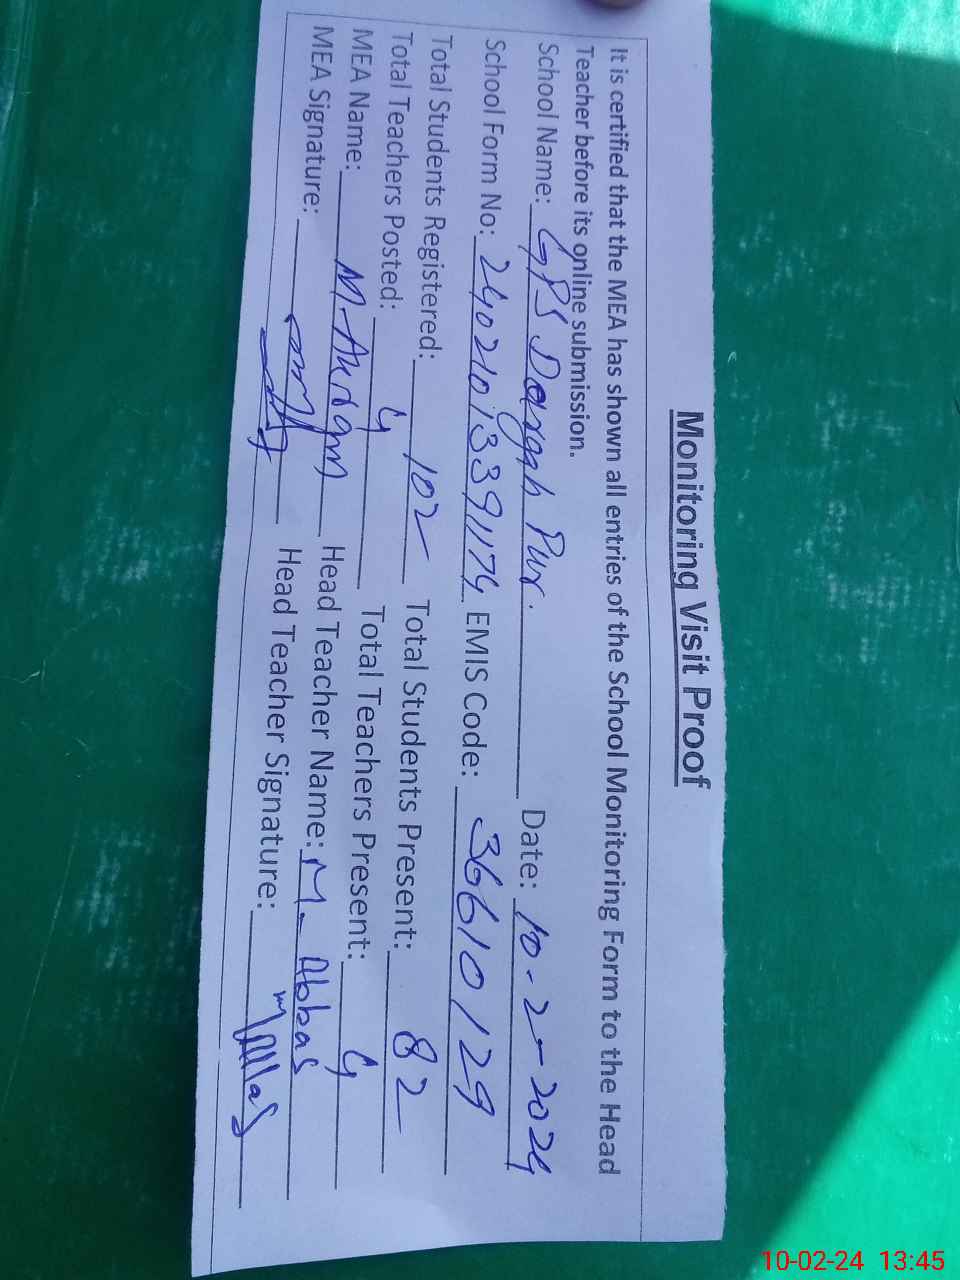 Monitoring Visit Proof
It is certified that the MEA has shown all entries of the School Monitoring Form to the Head
Teacher before its online submission.
School Name: GPS Dargah Pur. Date: 10-2-2024
School Form No: 24021013391174 EMIS Code: 36610129
Total Students Registered: 102 Total Students Present: 82
Total Teachers Posted: 4 Total Teachers Present: 4
MEA Name: M. Head Teacher Name: M. Abbas
MEA Signature: Head Teacher Signature: M Abbas
10-02-24 13:45